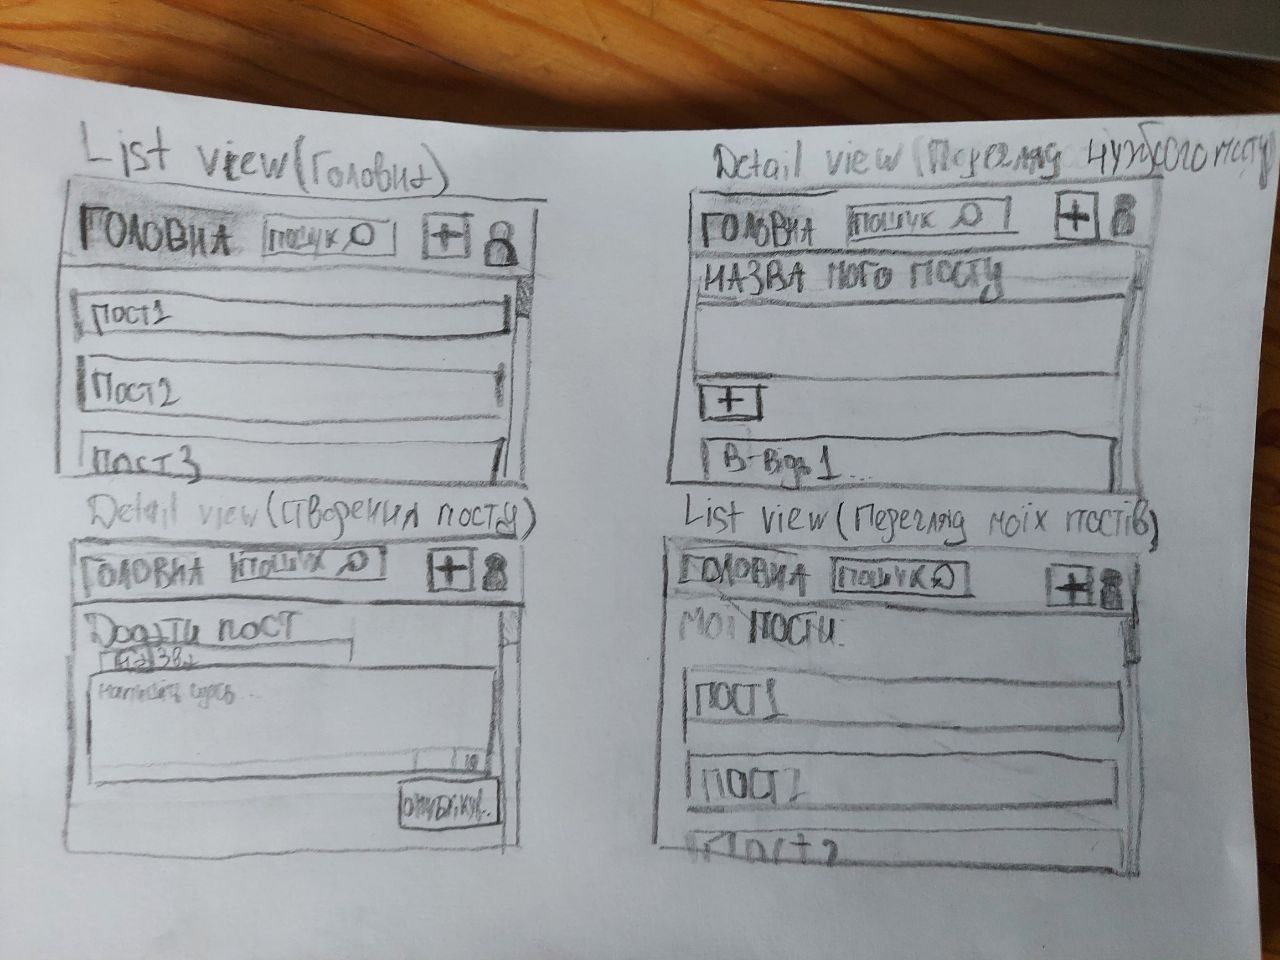 List view (Головна)
ГОЛОВНА пошук +
Пост1
Пост2
Пост3
Detail view (Перегляд чужого посту)
ГОЛОВНА пошук +
НАЗВА посту
+
В-відь 1...
Detail view (створення посту)
ГОЛОВНА пошук +
Додати пост
Назва
Напишіть щось...
List view (Перегляд моїх постів)
ГОЛОВНА пошук +
Мої пости:
Пост1
Пост2
Пост